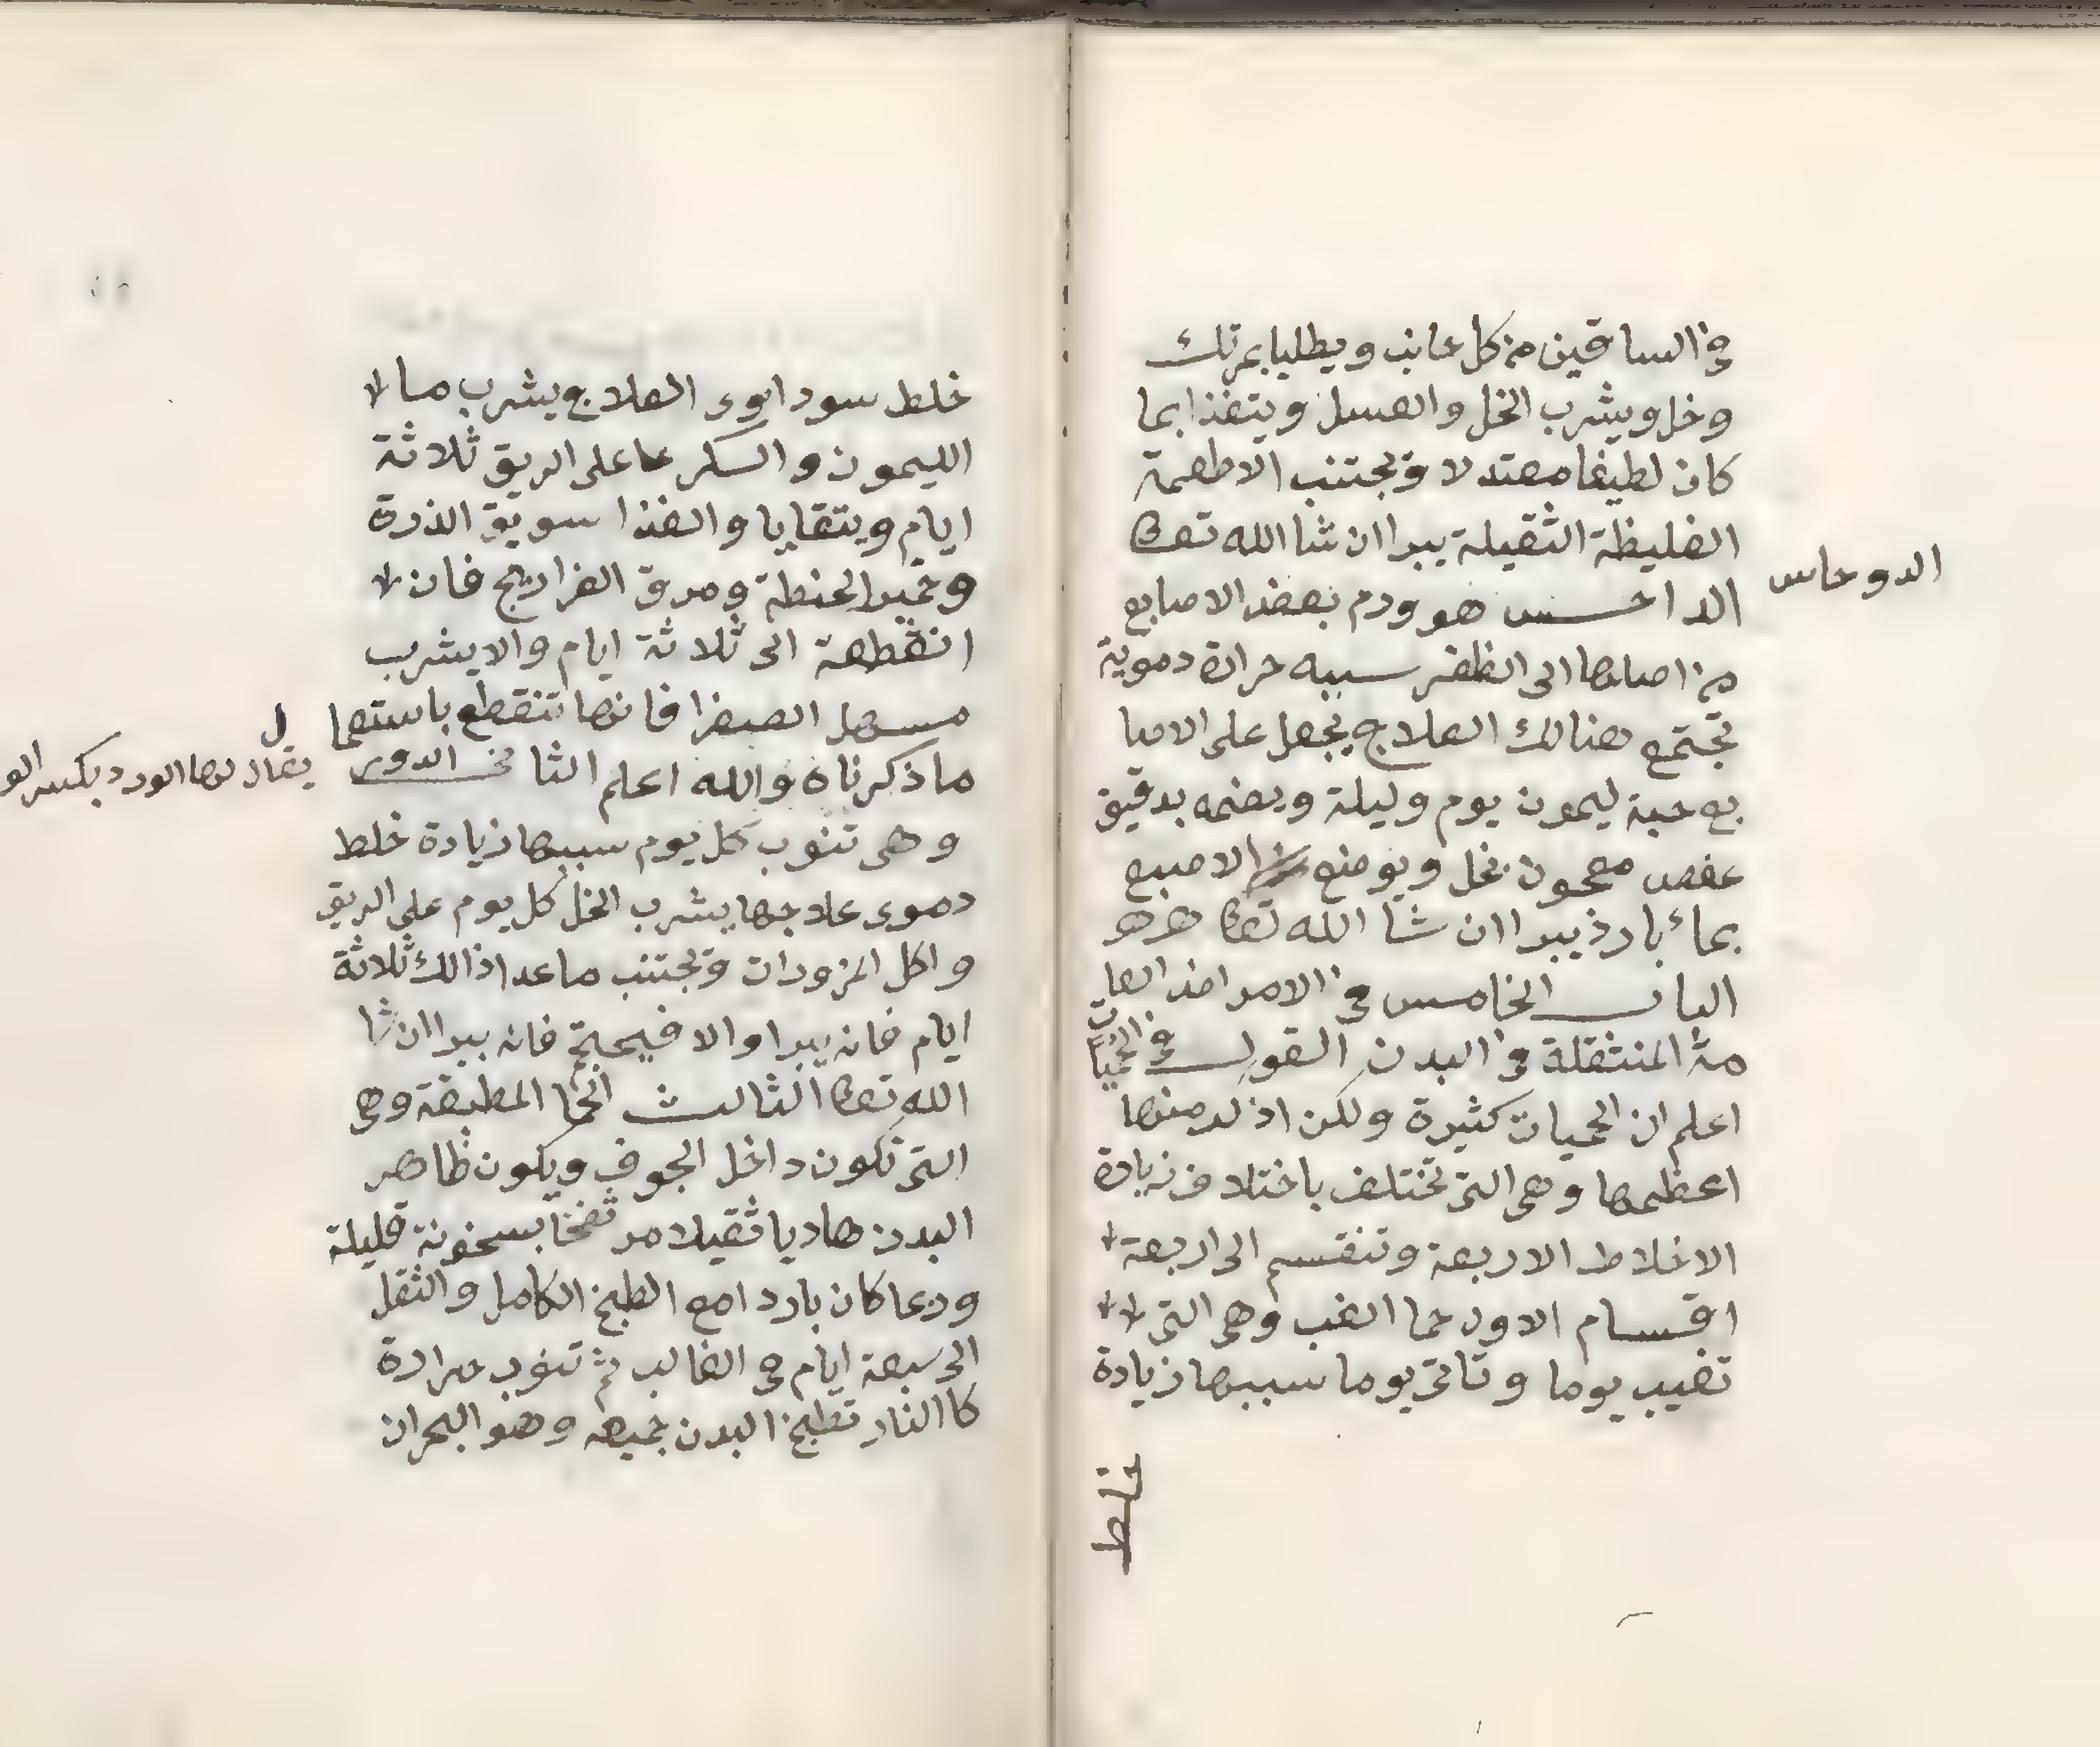 في الساقين من كل جانب ويطليا بمرتك
وخل ويشرب الخل والعسل ويتغذا بما
كان لطيفا معتدلا ويجتنب الاطعمة
الغليظة الثقيلة يبرا ان شا الله تعالى
الدوحاس
الداحس هو ورم بعض الاصابع
من اصلها الى الظفر سببه حرارة دموية
تجتمع هنالك العلاج يجعل على الاصا
بع حبة ليمون يوم وليلة ويضمه بدقيق
عفص معجون بخل ويوضع الاصبع
بماء بارد يبرا ان شا الله تعالى
الباب الخامس في الامراض العا
مة المنتقلة في البدن القول في الحميات
اعلم ان الحميات كثيرة ولكن اذكر منها
اعظمها وهي التي تختلف باختلاف زيادة
الاخلاط الاربعة وتنقسم الى اربعة
اقسام الاول حما الغب وهي التي
تغيب يوما وتاتي يوما سببها زيادة
خلط
خلط سوداوي العلاج يشرب ما
الليمون والسكر على الريق ثلاثة
ايام ويتقايا والغذا سويق الذرة
وخمير الحنطة ومرق الفراريج فان
انقطعة الى ثلاثة ايام والا يشرب
مسهل الصفرا فانها تنقطع باستعمال
ما ذكرناه والله اعلم الثاني الدوي
يقال لها الورد بكسر الو
وهي تنوب كل يوم سببها زيادة خلط
دموي علاجها يشرب الخل كل يوم على الريق
واكل المزورات ويجتنب ما عدا ذالك ثلاثة
ايام فانه يبرا والا فيحتجم فانه يبرا ان شا
الله تعالى الثالث الحما المطبقة وهي
التي تكون داخل الجوف ويكون ظاهر
البدن هاديا ثقيلا مرتفخا بسخونة قليلة
وربما كان باردا مع الطبخ الكامل والثقل
الى سبعة ايام في الغالب ثم تنوب حرارة
كاالنار تطبخ البدن جميعه وهو البحران